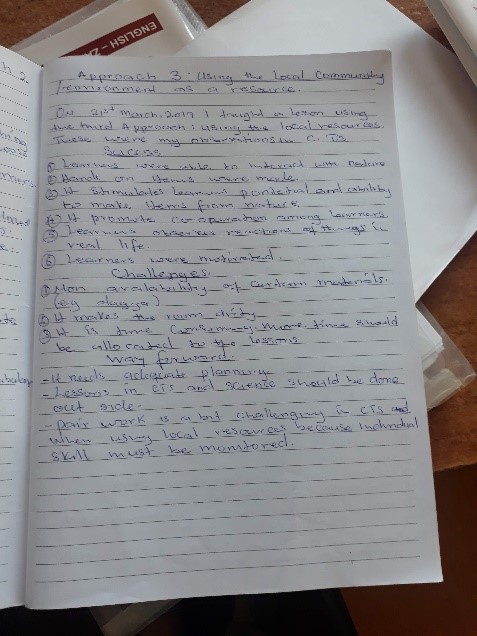 ENGLISH - ZA
Approach 3: Using the Local Community
/environment as a resource.
On 21st March, 2017 I taught a lesson using
the third Approach: using the local resources.
These were my observations in C.TS
Success
① Learners were able to interact with nature
② Hands on items were made.
③ It stimulates learners potential and ability
to make items from nature
④ It promote co-operation among learners
⑤ Learners observes reactions of things in
real life.
⑥ Learners were motivated.
Challenges.
① Non availability of certain materials.
(e.g
② It makes the room dirty.
③ It is time consuming. More time should
be allocated to the lessons
Way forward.
- It needs adequate planning
- Lessons in CTS and science should be done
out side.
- pair work is a bit challenging in CTS and
when using local resources because individual
skill must be monitored.